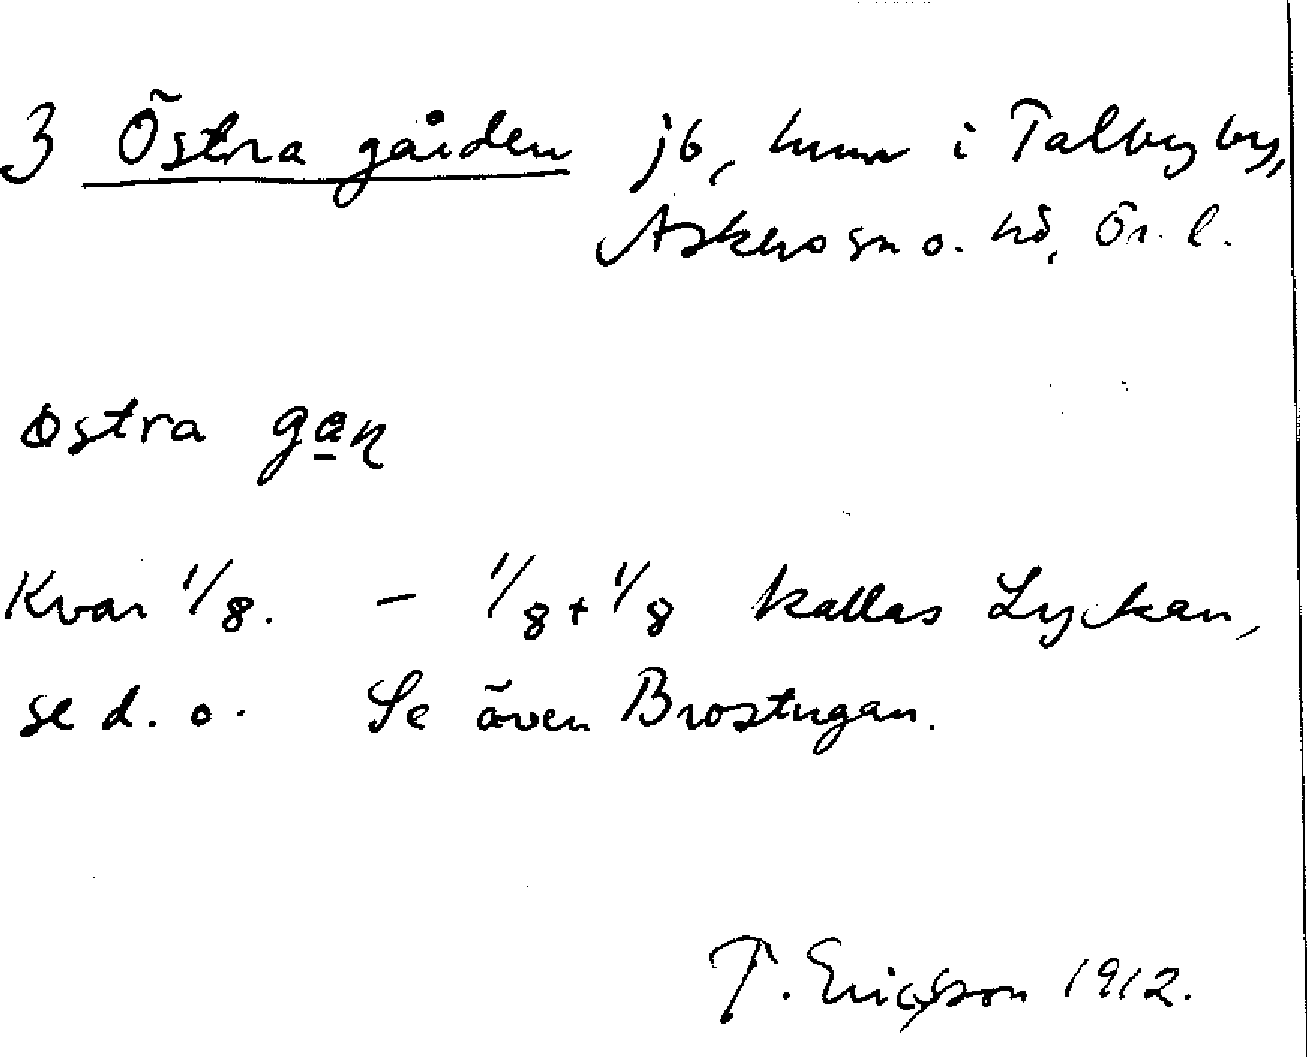 3 Östra gården jb, hmn i Talby by,
Askers sn o. hd, Ör. l.
østra gan
Kvar 1/8. – 1/8 + 1/8 kallas Lyckan,
se d. o. Se även Brostugan.
T. Ericsson 1912.